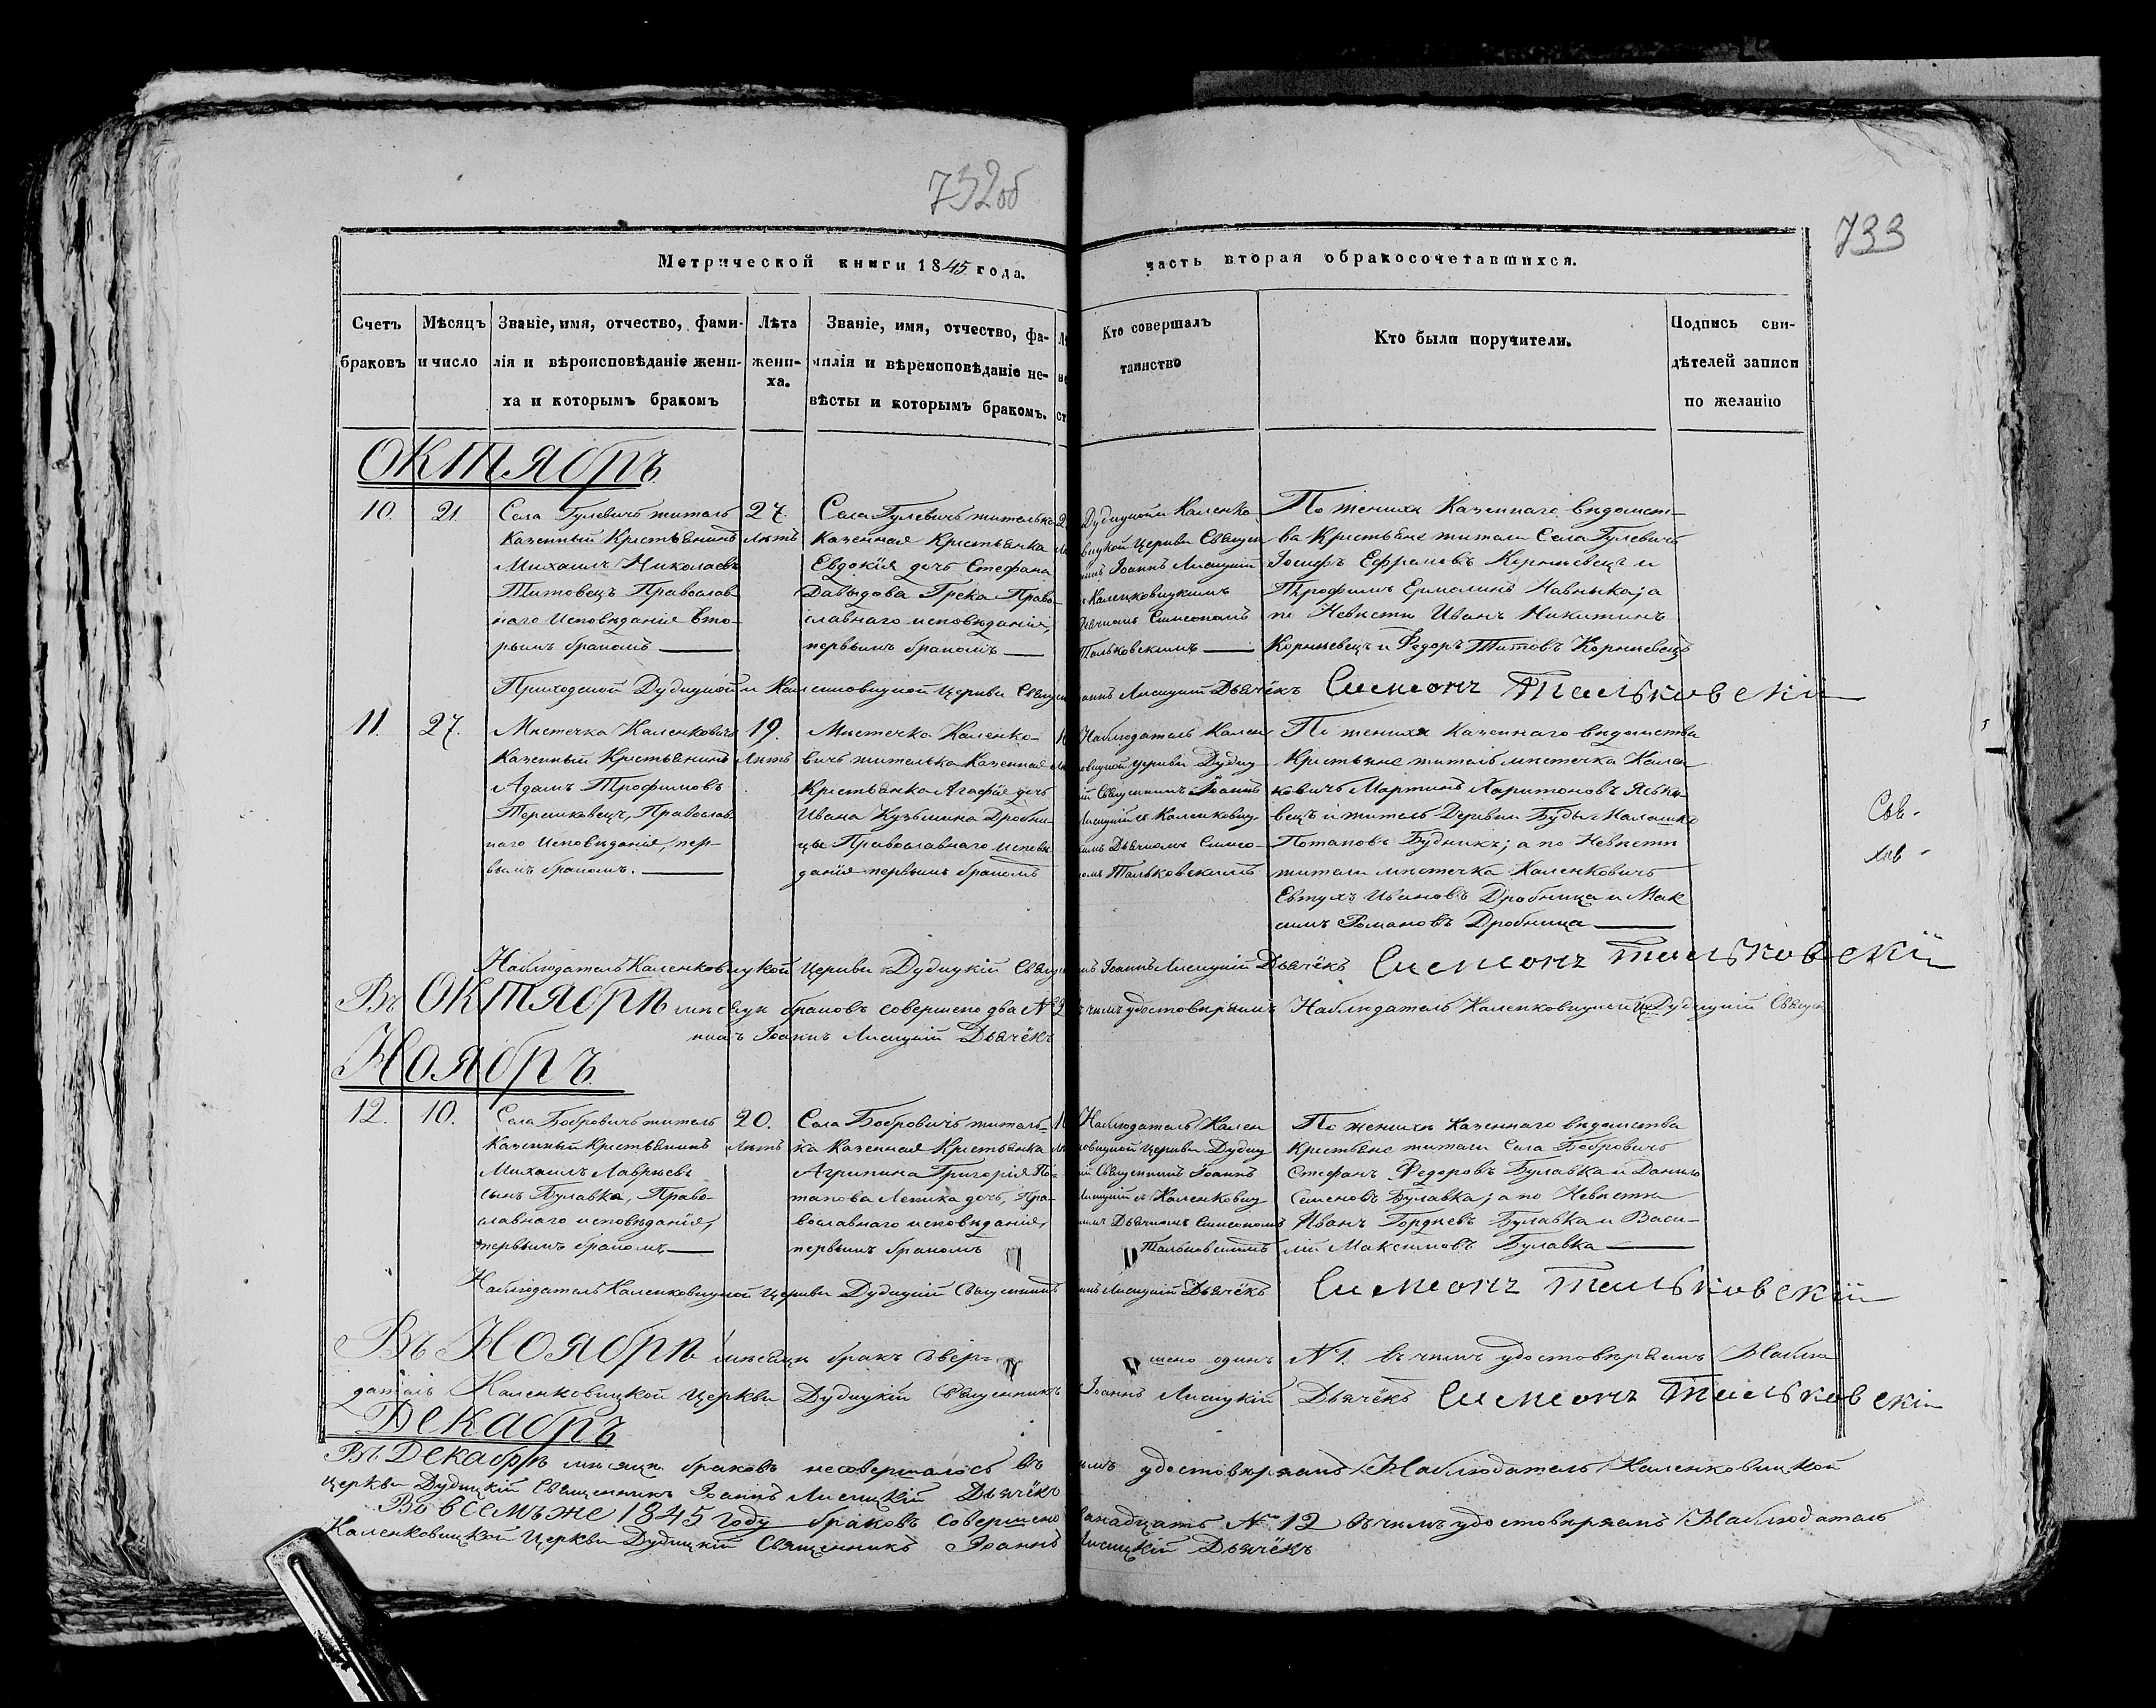 732об
733
Метрической книги 1845 года.
часть вторая о бракосочетавшихся.
Счетъ браковъ
Мѣсяцъ и число
Званіе, имя, отчество, фами-
лія и вѣроисповѣданіе жени-
ха и которымъ бракомъ
Лѣта
жени-
ха.
Званіе, имя, отчество, фа-
милія и вѣроисповѣданіе не-
вѣсты и которымъ бракомъ.
Кто совершалъ
таинство
Кто были поручители.
Подпись сви-
дѣтелей записи
по желанію
Октябрь
10.
21
Села Гулевичъ житель
Казенный Крестьянинъ
Михаилъ Николаевъ
Титовецъ Православ-
наго Исповѣданія вто-
рымъ бракомъ
27.
лѣтъ
Села Гулевичъ жителька
Казенная Крестьянка
Евдокія дочь Стефана
Давыдова Грека Право-
славнаго исповѣданія,
первымъ бракомъ
Дудицкой и Каленко-
вицкой Церкви Священ
никъ Іоаннъ Лисицкій
съ Каленковицкимъ
Дьячкомъ Симеономъ
Тальковскимъ
По женихѣ Казеннаго вѣдомст-
ва Крестьяне жители Села Гулевичъ
Іосифъ Ефрановъ Корнѣевецъ и
Трофимъ Ермолинъ Навныка; а
по Невѣстѣ Иванъ Никитинъ
Корнѣевецъ и Федоръ Титовъ Корнѣевецъ
Приходской Дудицкой и Каленковицкой Церкви Священ
Іоаннъ Лисицкій Дьячёкъ Симеонъ Тальковскій
11.
27.
Мѣстечка Каленковичъ
Казенный Крестьянинъ
Адамъ Трофимовъ
Терешковецъ, Православ-
наго Исповѣданія, пер-
вымъ бракомъ.
19.
лѣтъ
Мѣстечка Каленко-
вичъ жителька Казенная
Крестьянка Агафія дочь
Ивана Кузьмина Дробни-
цы Православнаго исповѣ
данія первымъ бракомъ
Наблюдатель Кален
ковицкой церкви Дудиц
кій Священникъ Іоаннъ
Лисицкій съ Каленковиц-
кимъ Дьячкомъ Симео-
номъ Тальковскимъ
По женихѣ Казеннаго вѣдомства
Крестьяне житель мѣстечка Кален
ковичъ Мартинъ Харитоновъ Яськ-
вецъ и житель Деревни Буды Калашко
Потаповъ Будникъ; а по Невѣстѣ
жители мѣстечка Каленковичъ
Евтухъ Ивановъ Дробница и Мак
симъ Романовъ Дробница
Наблюдатель Каленковицкой Церкви Дудицкій Свящ
Іоаннъ Лисицкій Дьячёкъ Симеонъ Тальковскій
Въ Октябрѣ мѣсяцѣ браковъ совершено два №2
въ чемъ удостовѣряемъ Наблюдатель Каленковицкой Ц. Дудицкій Священ
никъ Іоаннъ Лисицкій Дьячёкъ
Ноябрь
12.
10.
Села Бобровичъ житель
Казенный Крестьянинъ
Михаилъ Лаврѣевъ
сынъ Булавка, Право-
славнаго исповѣданія,
первымъ бракомъ
20.
лѣтъ
Села Бобровичъ житель-
ка Казенная Крестьянка
Агрипина Григорія По-
тапова Лепика дочь, Пра-
вославнаго исповѣданія,
первымъ бракомъ
Наблюдатель Кален
ковицкой Церкви Дудиц
кій Священникъ Іоаннъ
Лисицкій съ Каленковиц
кимъ Дьячкомъ Симеономъ
Тальковскимъ
По женихѣ Казеннаго вѣдомства
Крестьяне жители Села Бобровичъ
Стефанъ Федоровъ Булавка и Данило
Семеновъ Булавка; а по Невѣстѣ
Иванъ Гордѣевъ Булавка и Васи-
лій Максимовъ Булавка
Наблюдатель Каленковицкой Церкви Дудицкій Священникъ
Лисицкій Дьячёкъ Симеонъ Тальковскій
Въ Ноябрѣ мѣсяцѣ бракъ совер-
шено одинъ №1. въ чемъ удостовѣряемъ Наблю
датель Каленковицкой Церкви Дудицкій Священникъ Іоаннъ Лисицкій Дьячёкъ Симеонъ Тальковскій
Декабрь
Въ Декабрѣ мѣсяцѣ браковъ несовершалось въ чемъ удостовѣряемъ Наблюдатель Каленковицкой
Церкви Дудицкій Священникъ Іоаннъ Лисицкій Дьячёкъ
Въ всемъ же 1845 году браковъ совершено двенадцать № 12 въ чемъ удостовѣряемъ Наблюдатель
Каленковицкой Церкви Дудицкій Священникъ Іоаннъ Лисицкій Дьячёкъ